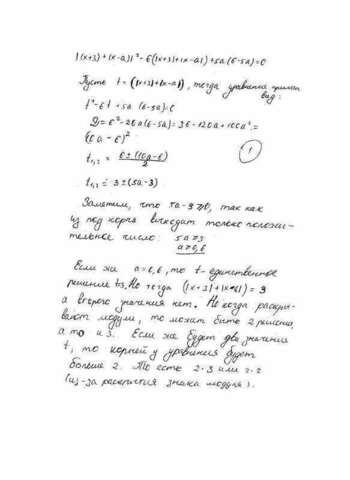 |(x+3)+(x-a)|² - 6(|x+3|+|x-a|) + 5a(6-5a)=0
Пусть t = (|x+3|+|x-a|), тогда уравнение примет
вид:
t² - 6t + 5a (6-5a)=0
D = 6² - 20a(6-5a) = 36 - 120a + 100a² =
(10a - 6)²
t₁,₂ = 6 ± (10a - 6) / 2
1
t₁,₂ = 3 ± (5a - 3)
Заметим, что 5a - 3 ≥ 0, так как
из под корня выходит только положи-
тельное число: 5a ≥ 3
a ≥ 0,6
Если же a = 0,6, то t - единственное
решение t=3. Но тогда (|x+3|+|x-a|) = 3
а второго значения нет. Но когда раскры-
вают модули, то может быть 2 решения,
а то и 3. Если же будет два значения
t, то корней у уравнения будет
больше 2. То есть 2·3 или 2·2
(из-за раскрытия знака модуля).